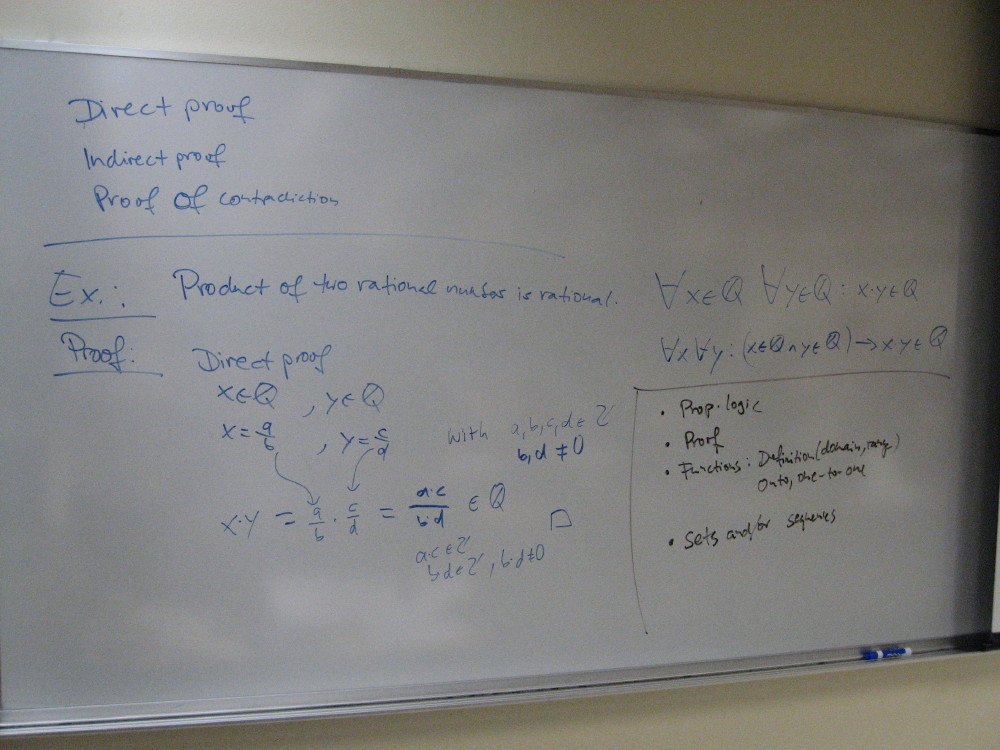 Direct proof
Indirect proof
Proof of contradiction
Ex.: Product of two rational number is rational.
∀x∈ℚ ∀y∈ℚ: x·y∈ℚ
∀x∀y: (x∈ℚ ∧ y∈ℚ) → x·y∈ℚ
Proof: Direct proof
x∈ℚ , y∈ℚ
x = a/b , y = c/d with a,b,c,d ∈ ℤ
b,d ≠ 0
x·y = a/b · c/d = a·c/b·d ∈ ℚ □
a·c ∈ ℤ
b·d ∈ ℤ, b·d ≠ 0
• Prop. logic
• Proof
• Functions: Definition (domain, range)
Onto, one-to-one
• Sets and/or sequences